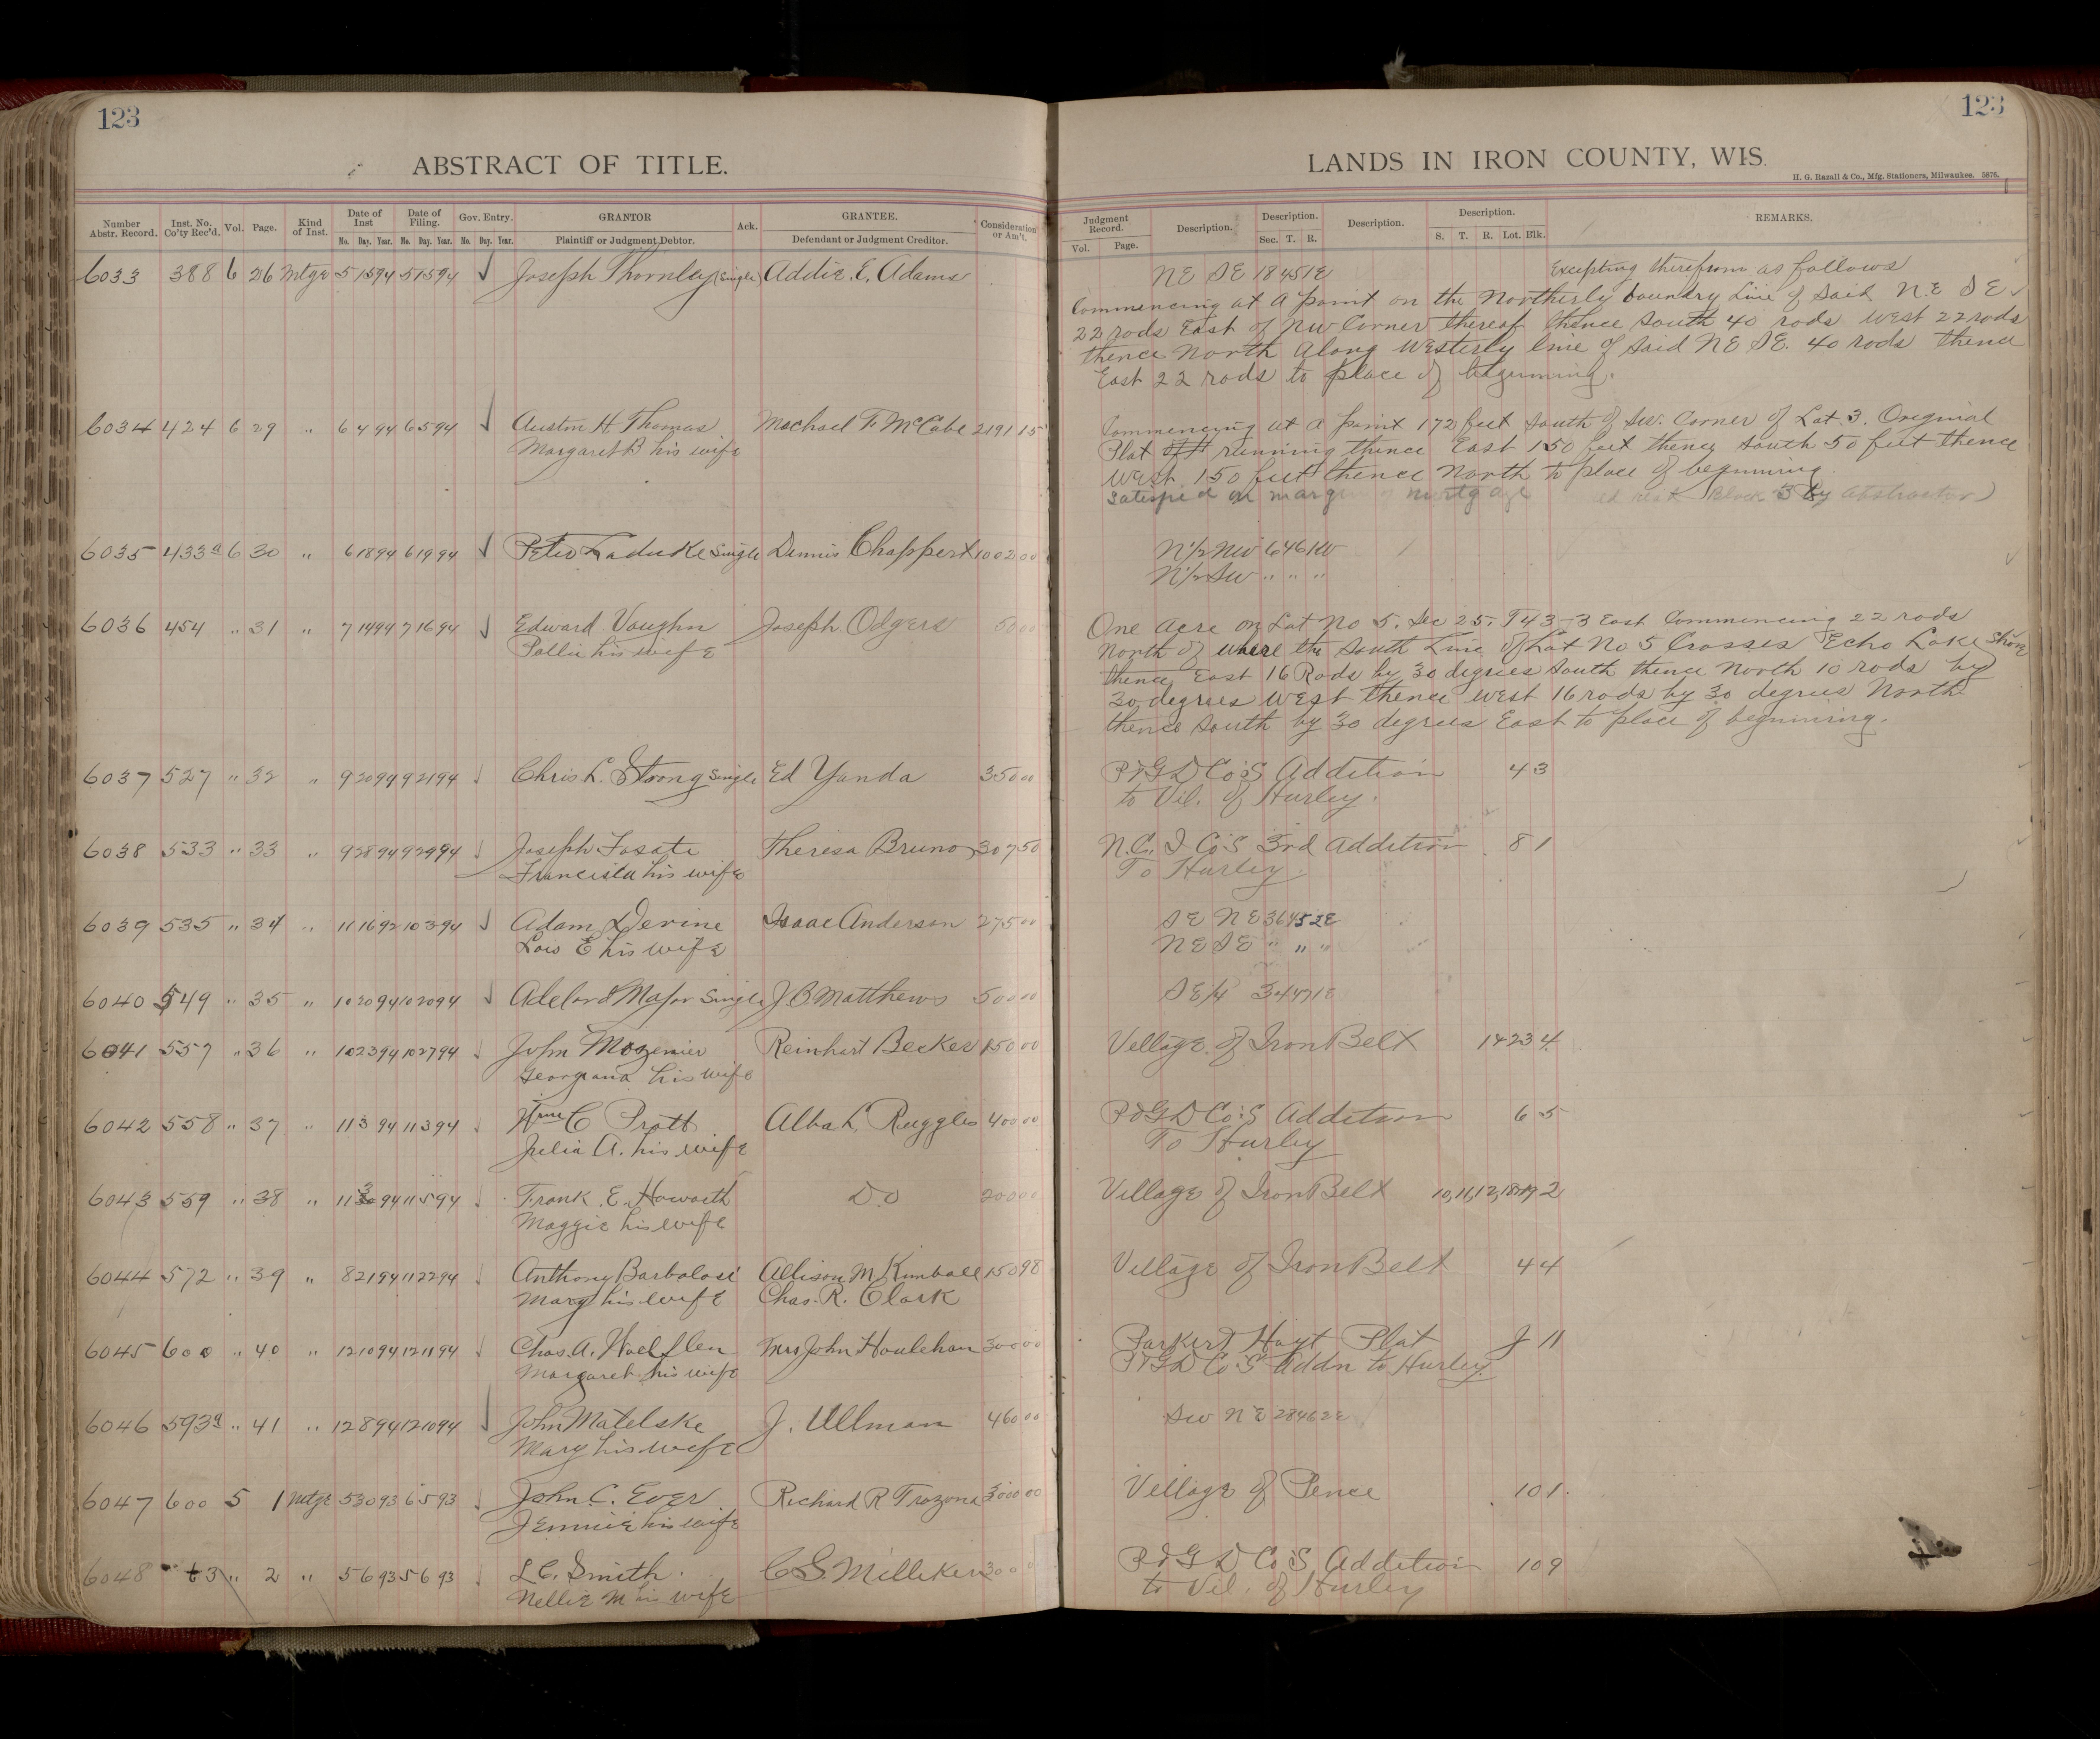 123
ABSTRACT OF TITLE.
Number Abstr. Record. Inst. No. Co'ty Rec'd. Vol. Page. Kind of Inst. Date of Inst Mo. Day. Year. Date of Filing. Mo. Day. Year. Gov. Entry. Mo. Day. Year. GRANTOR Plaintiff or Judgment Debtor. Ack. GRANTEE. Defendant or Judgment Creditor. Consideration or Am't.
6033 388 6 26 Mtge 5 15 94 5 15 94 Joseph Thornley (single) Addie. E. Adams
6034 424 6 29 " 6 4 94 6 5 94 Austin H Thomas Mechael F McCabe 2191 15
Margaret B his wife
6035 433a 6 30 " 6 18 94 6 19 94 Peter Laduke Single Dennis Chappert 1002 00
6036 454 " 31 " 7 14 94 7 16 94 Edward Vaughn Joseph Odgers 50 00
Pollie his wife
6037 527 " 32 " 9 20 94 9 21 94 Chris L. Strong Single Ed Yanda 350 00
6038 533 " 33 " 9 28 94 9 29 94 Joseph Fosate Theresa Bruno 307 50
his wife
6039 535 " 34 " 11 16 92 10 3 94 Adam Devine Isaac Anderson 275 00
Lois E his wife
6040 549 " 35 " 10 20 94 10 20 94 Adelord Major Single J. B. Matthews 500 00
6041 557 " 36 " 10 23 94 10 27 94 John Reinhart Becker 150 00
Georgiana his wife
6042 558 " 37 " 11 3 94 11 3 94 Wm C Pratt Alba L. Ruggles 400 00
Julia A. his wife
6043 559 " 38 " 11 3 94 11 5 94 Frank. E. Haworth D.O 200 00
Maggie his wife
6044 572 " 39 " 8 21 94 11 22 94 Anthony Barbolosi Allison M Kimball 150 98
Mary his wife Chas. R. Clark
6045 600 " 40 " 12 10 94 12 11 94 Chas. A. Hoefflen Mrs John Houlehan 300 00
Margaret his wife
6046 593a " 41 " 12 8 94 12 10 94 John Matelske J. Ullman 460 00
Mary his wife
6047 600 5 1 Mtge 5 30 93 6 5 93 John. C. Ever Richard R Trozona 3000 00
Jennie his wife
6048 3 " 2 " 5 6 93 5 6 93 L C. Smith. C S. Milliken 300
Nellie M his wife
123
LANDS IN IRON COUNTY, WIS.
H. G. Razall & Co., Mfg. Stationers, Milwaukee. 5876.
Judgment Record. Vol. Page. Description. Description. Sec. T. R. Description. Description. S. T. R. Lot. Blk. REMARKS.
NE SE 18 45 1E Excepting therefrom as follows
Commencing at a point on the Northerly boundry Line of said N.E S E
22 rods East of NW Corner thereof thence South 40 rods West 22 rods
thence North along Westerly line of said NE SE. 40 rods thence
East 22 rods to place of beginning.
Commencing at a point 172 feet South of SW. Corner of Lot 3. Original
Plat running thence East 150 feet thence South 50 feet thence
West 150 feet thence North to place of beginning
Satisfied on margin of mortgage Block 3 by abstractor)
N½ NW 6 46 1W
N½ SW " " "
One Acre on Lot No 5. Sec 25. T 43-3 East Commencing 22 rods
North of where the South Line of Lot No 5 Crosses Echo Lake Shore
thence East 16 Rods by 30 degrees South thence North 10 rods by
30 degrees West thence West 16 rods by 30 degrees North
thence South by 30 degrees East to place of beginning.
P & G D Co's Addition 4 3
to Vil. of Hurley.
N.C. I Co's 3rd Addition 8 1
To Hurley.
SE NE 36 45 2E
NE SE " " "
SE/4 3 47 1E
Village of Iron Belt 14 23 4
P & G D Co's Addition 6 5
To Hurley
Village of Iron Belt 10, 11, 12, 18 & 19 2
Village of Iron Belt 4 4
Parker & Hoyt Plat J 11
P & G D Co's Addn to Hurley.
SW NE 28 46 2E
Village of Pence 10 1
P & G D Co's Addition 10 9
to Vil. of Hurley